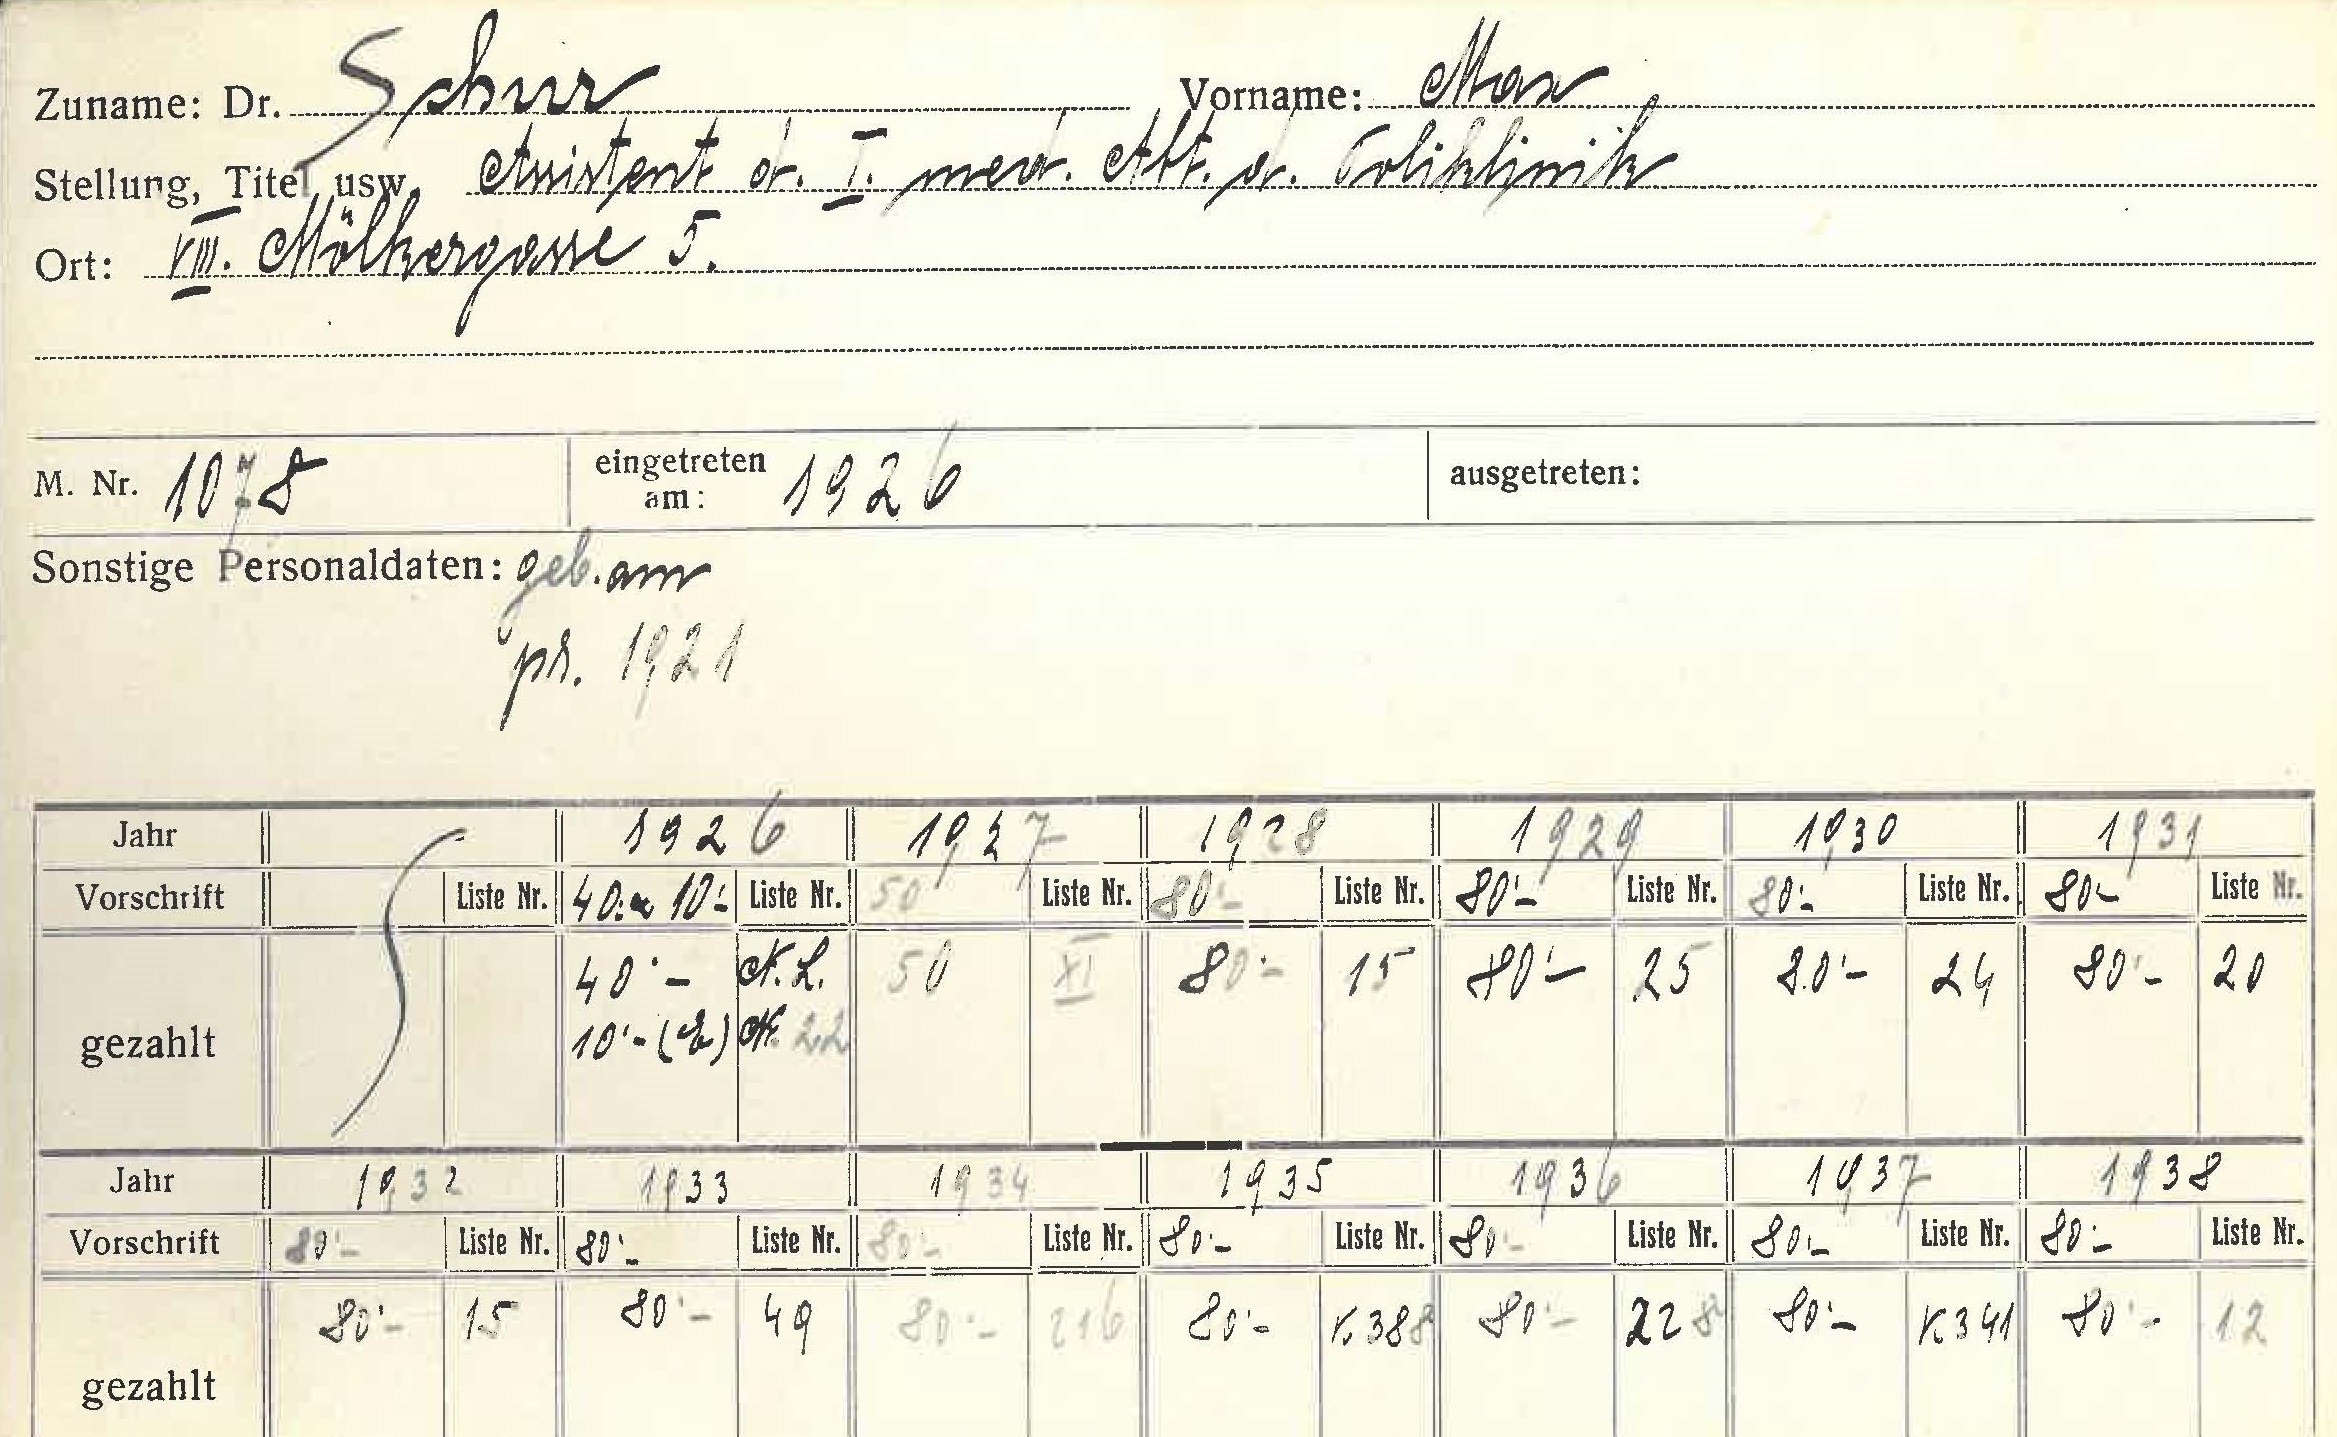 Zuname: Dr. Schur Vorname: Max
Stellung, Titel usw. Assistent d. I. med. Abt. d. Poliklinik
Ort: VIII. Mölkergasse 5.
M. Nr. 1078 eingetreten am: 1926 ausgetreten:
Sonstige Personaldaten: geb. am
pr. 1921
Jahr 1926 1927 1928 1929 1930 1931
Vorschrift Liste Nr. 40.- 10.- Liste Nr. 50 Liste Nr. 80.- Liste Nr. 80.- Liste Nr. 80.- Liste Nr. 80.- Liste Nr.
gezahlt 40.- N. L. 50 XI 80.- 15 80.- 25 80.- 24 80.- 20
10.- N. 22
Jahr 1932 1933 1934 1935 1936 1937 1938
Vorschrift 80.- Liste Nr. 80.- Liste Nr. 80.- Liste Nr. 80.- Liste Nr. 80.- Liste Nr. 80.- Liste Nr. 80.- Liste Nr.
gezahlt 80.- 15 80.- 49 80.- 216 80.- K. 388 80.- 228 80.- K 341 80.- 12